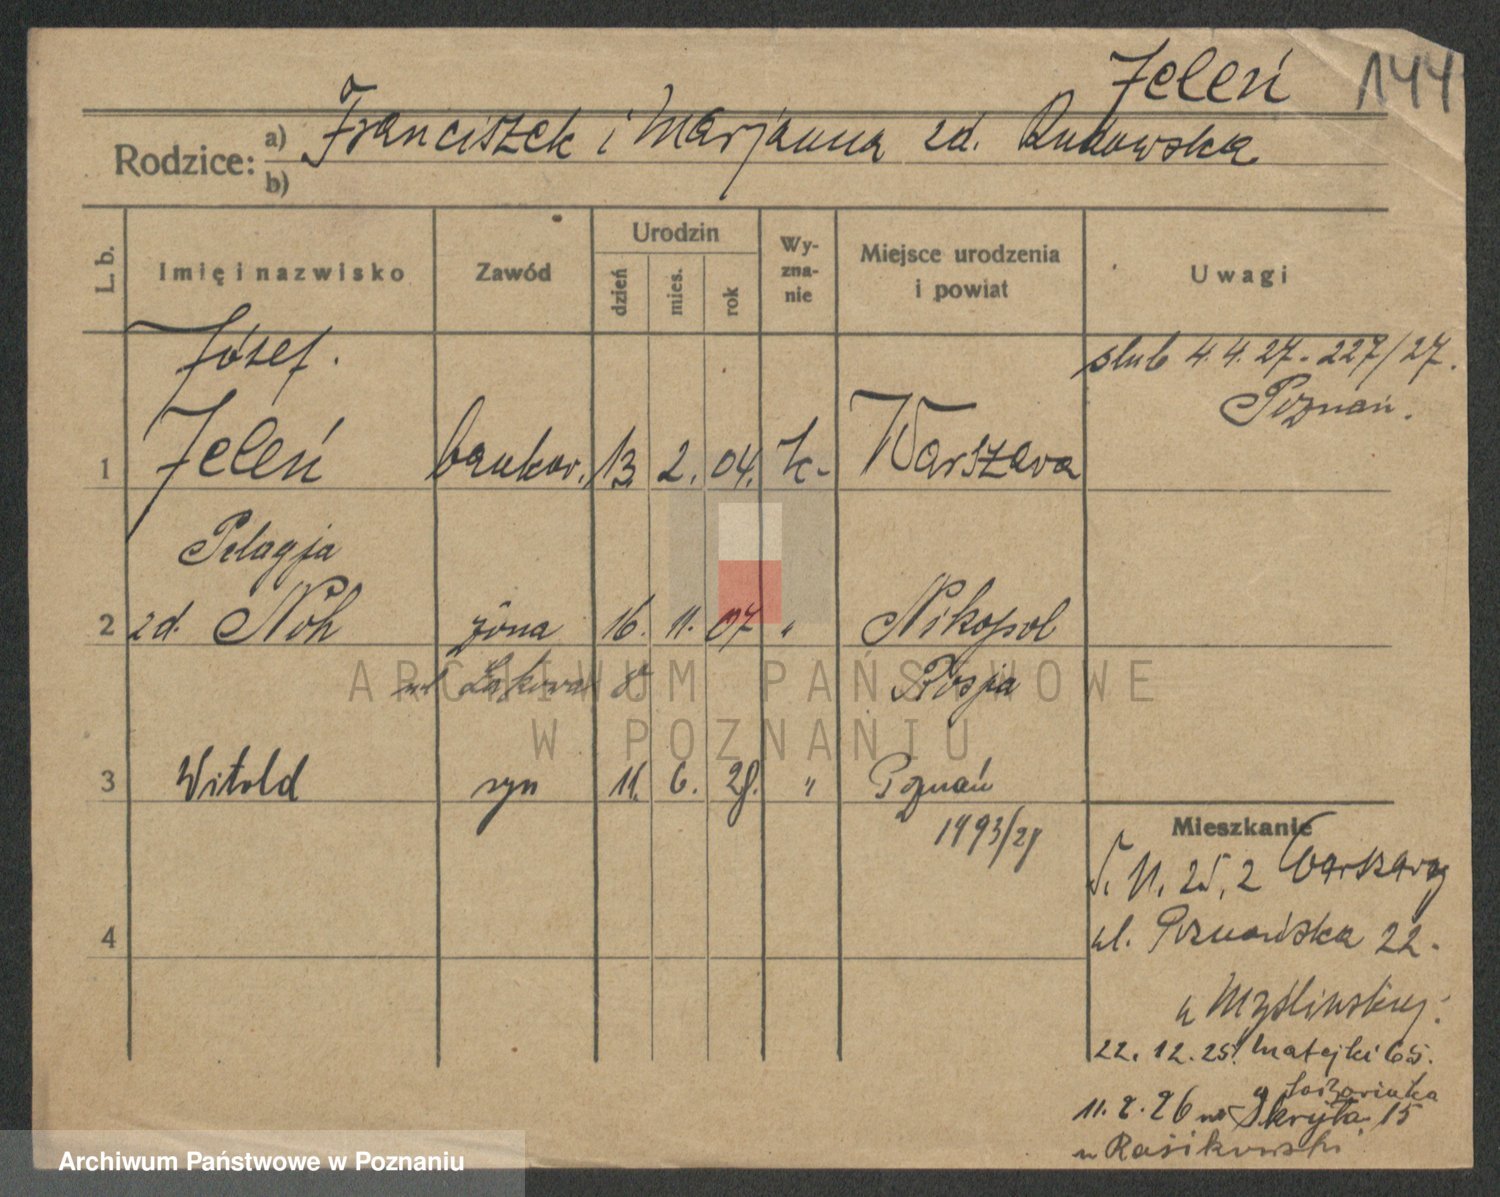 Jeleń 144
Rodzice: a) Franciszek i Marjanna zd.
b)
L. b. Imię i nazwisko Zawód Urodzin dzień mies. rok Wy-zna-nie Miejsce urodzenia i powiat Uwagi
Józef. ślub 4. 4. 27. 227/27.
Poznań.
1 Jeleń bankow. 13. 2. 04. k- Warszawa
Pelagja
2 zd. Noh żona 16. 11. 07 " Nikopol
ul. Łąkowa 8 Rosja
3 Witold syn 11. 6. 28. " Poznań
1993/28
Mieszkanie
11. 25, z Warszawy
4 ul. Poznańska 22.
u Myśliwskiej.
22. 12. 25. Matejki 65.
u
11. 8. 26 Skryta 15
u Rasikowski
ARCHIWUM PAŃSTWOWE
W POZNANIU
Archiwum Państwowe w Poznaniu